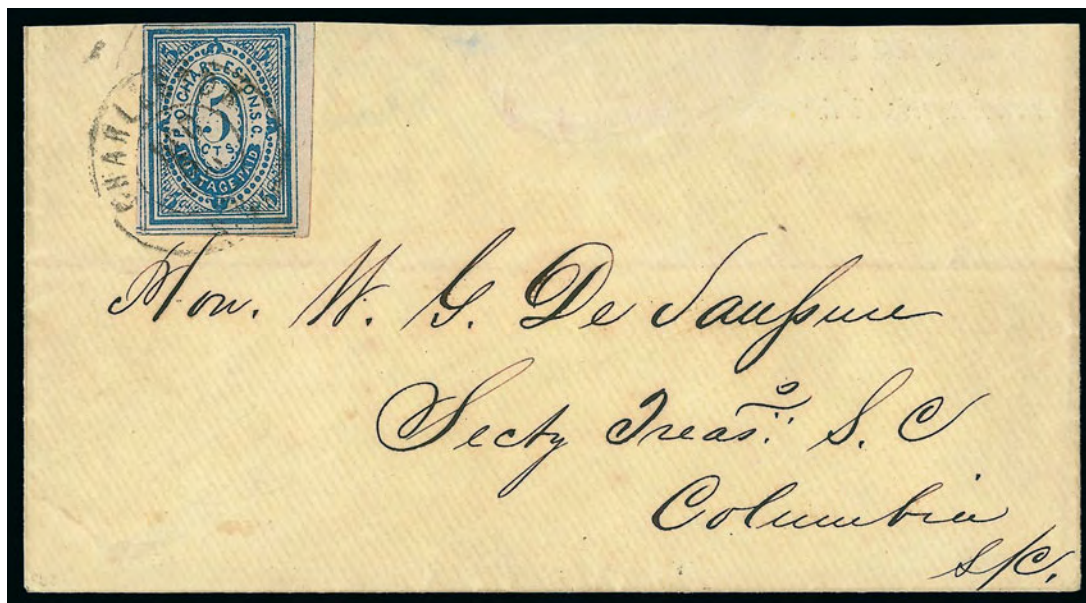 P.O. CHARLESTON, S.C.
5
CTS.
POSTAGE PAID
CHARLES
Hon. W. G. De Sauſsure
Secty Treas: S. C
Columbia
S/C.